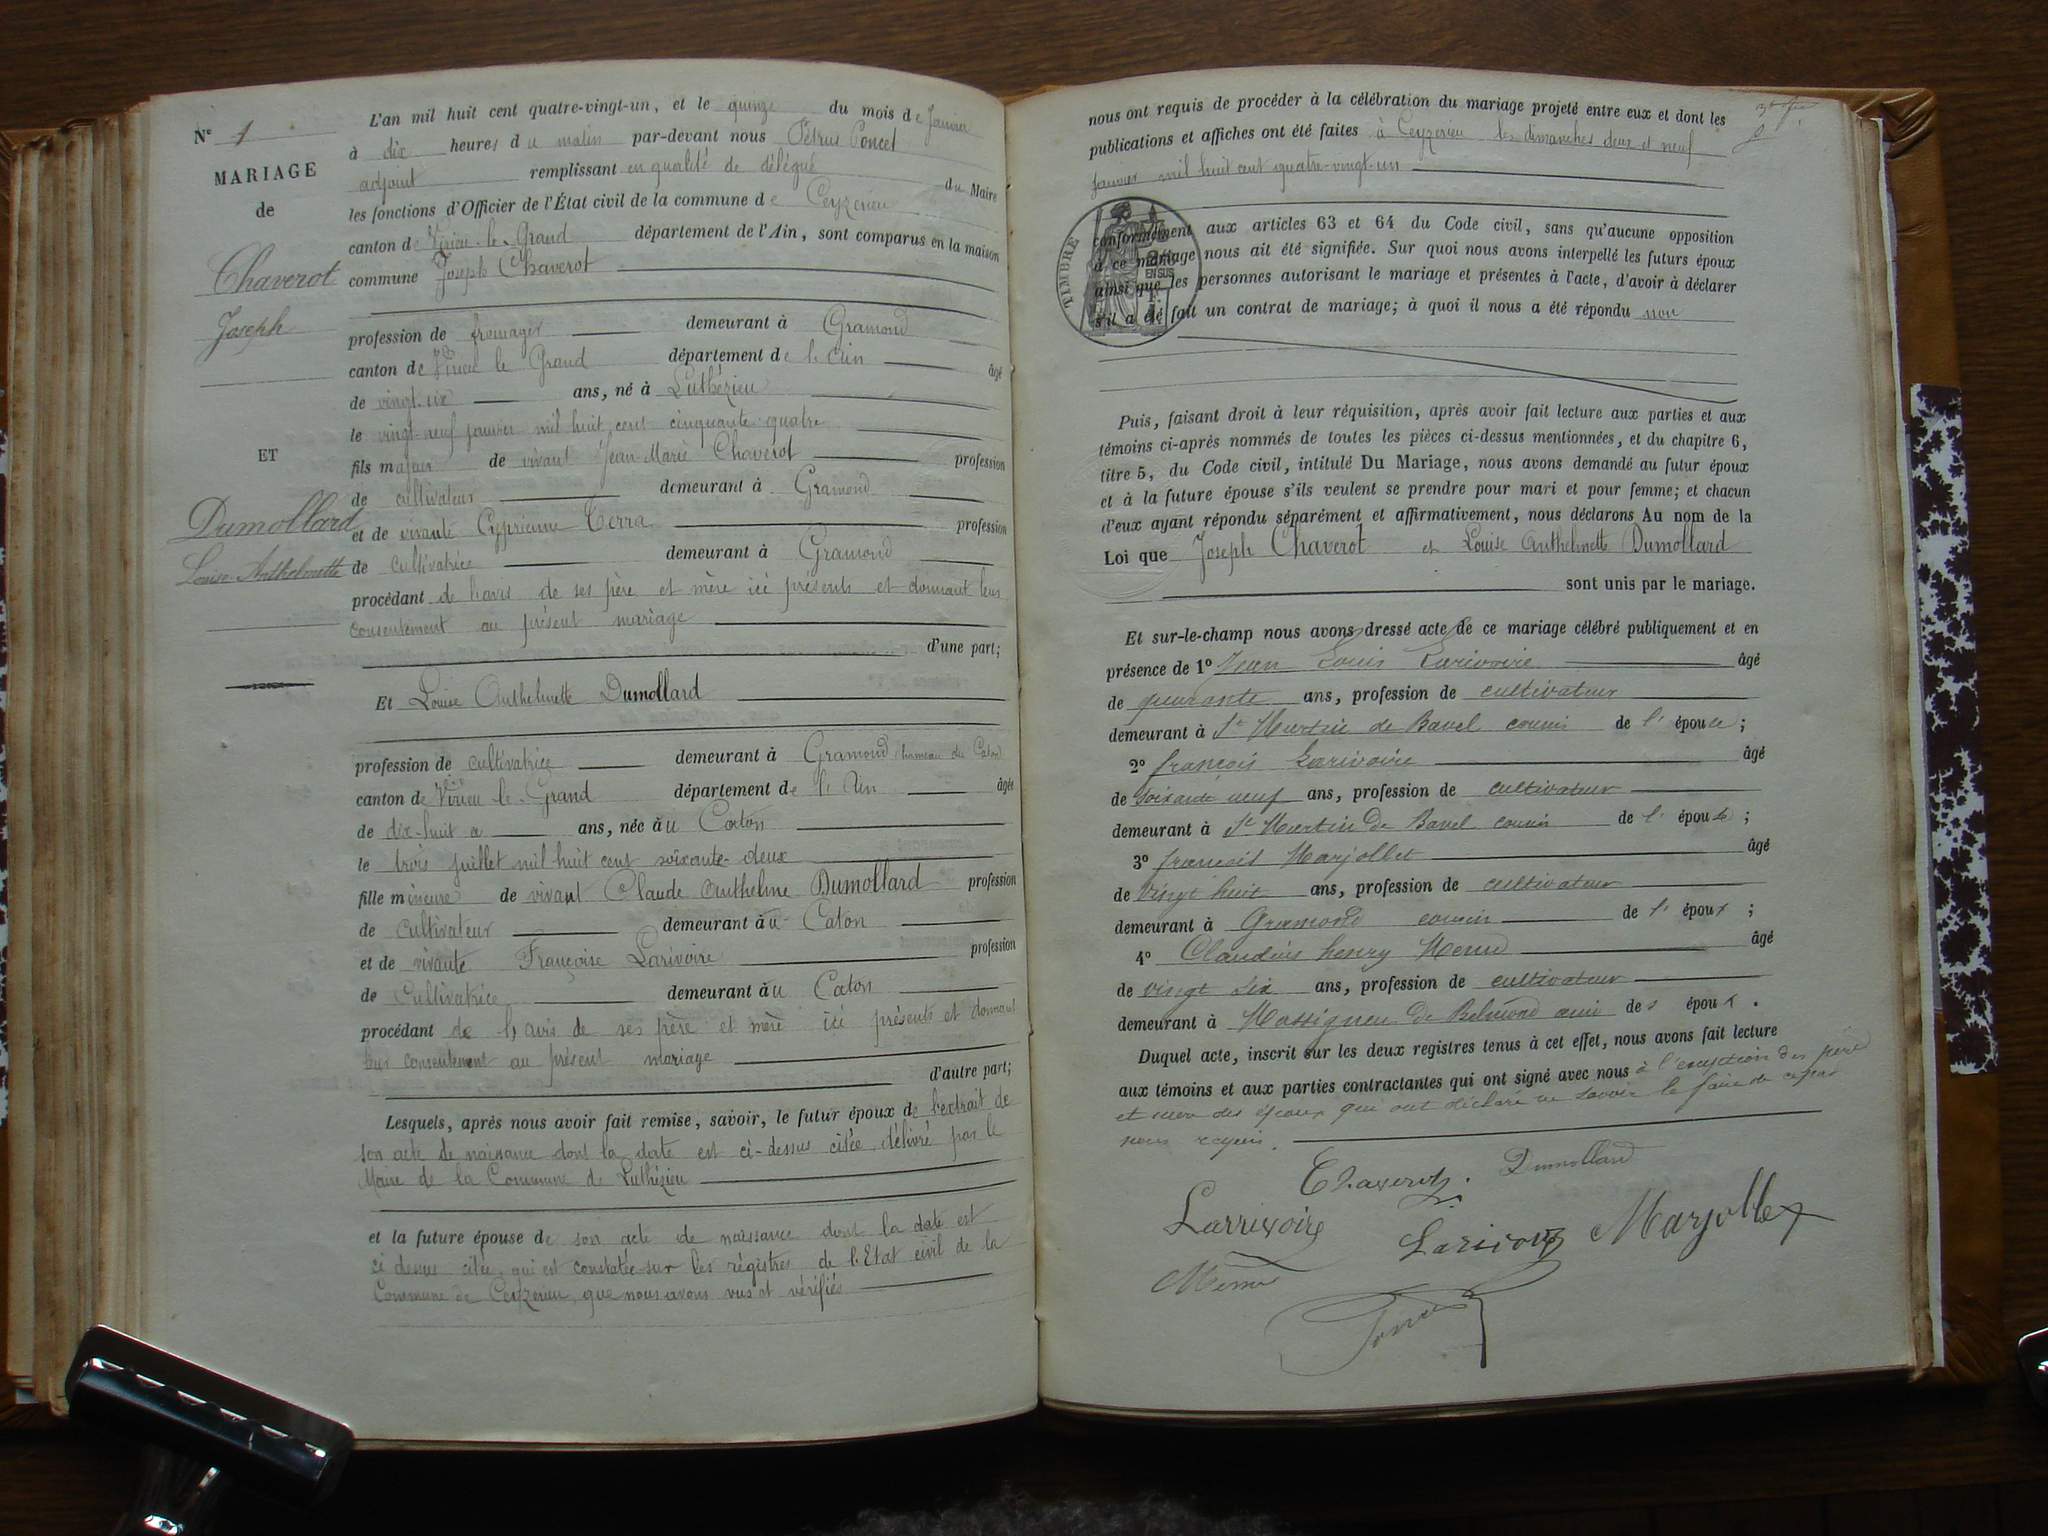 Nº 1
MARIAGE
de
Chaverot
Joseph
ET
Dumollard
Louise Anthelmette
L'an mil huit cent quatre-vingt-un, et le quinze du mois de Janvier
à dix heures du matin par-devant nous Pétrus Poncet
adjoint remplissant en qualité de délégué du Maire
les fonctions d'Officier de l'État civil de la commune de Ceyzerieu
canton de Virieu-le-Grand département de l'Ain, sont comparus en la maison
commune Joseph Chaverot
profession de fromager demeurant à Gramond
canton de Virieu le Grand département de l'Ain âgé
de vingt-six ans, né à Luthézieu
le vingt-neuf janvier mil huit cent cinquante-quatre
fils majeur de vivant Jean-Marie Chaverot profession
de cultivateur demeurant à Gramond
et de vivante Cyprienne Terra profession
de cultivatrice demeurant à Gramond
procédant de l'avis de ses père et mère ici présents et donnant leur
consentement au présent mariage
d'une part;
Et Louise Anthelmette Dumollard
profession de cultivatrice demeurant à Gramond hameau du Caton
canton de Virieu-le-Grand département de l'Ain âgée
de dix-huit ans, née au Caton
le trois juillet mil huit cent soixante-deux
fille mineure de vivant Claude Anthelme Dumollard profession
de cultivateur demeurant au Caton
et de vivante Françoise Larivoire profession
de Cultivatrice demeurant au Caton
procédant de l'avis de ses père et mère ici présents et donnant
leur consentement au présent mariage
d'autre part;
Lesquels, après nous avoir fait remise, savoir, le futur époux de l'extrait de
son acte de naissance dont la date est ci-dessus citée, délivré par le
Maire de la Commune de Luthézieu
et la future épouse de son acte de naissance dont la date est
ci dessus citée, qui est constatée sur les régistres de l'Etat civil de la
Commune de Ceyzerieu, que nous avons vus et vérifiés
nous ont requis de procéder à la célébration du mariage projeté entre eux et dont les
publications et affiches ont été faites à Ceyzerieu les dimanches deux et neuf
janvier mil huit cent quatre-vingt-un
TIMBRE
EN SUS
conformément aux articles 63 et 64 du Code civil, sans qu'aucune opposition
à ce mariage nous ait été signifiée. Sur quoi nous avons interpellé les futurs époux
ainsi que les personnes autorisant le mariage et présentes à l'acte, d'avoir à déclarer
s'il a été fait un contrat de mariage; à quoi il nous a été répondu non
Puis, faisant droit à leur réquisition, après avoir fait lecture aux parties et aux
témoins ci-après nommés de toutes les pièces ci-dessus mentionnées, et du chapitre 6,
titre 5, du Code civil, intitulé Du Mariage, nous avons demandé au futur époux
et à la future épouse s'ils veulent se prendre pour mari et pour femme; et chacun
d'eux ayant répondu séparément et affirmativement, nous déclarons Au nom de la
Loi que Joseph Chaverot et Louise Anthelmette Dumollard
sont unis par le mariage.
Et sur-le-champ nous avons dressé acte de ce mariage célébré publiquement et en
présence de 1º Jean Louis Larivoire âgé
de quarante ans, profession de cultivateur
demeurant à St Martin de Bavel cousin de l'épouse;
2º françois Larivoire âgé
de soixante neuf ans, profession de cultivateur
demeurant à St Martin de Bavel cousin de l'épouse;
3º francois Marjollet âgé
de vingt huit ans, profession de cultivateur
demeurant à Gramond cousin de l'époux;
4º Claudius henry Memu âgé
de vingt six ans, profession de cultivateur
demeurant à Massigneu de Belmond ami des époux.
Duquel acte, inscrit sur les deux registres tenus à cet effet, nous avons fait lecture
aux témoins et aux parties contractantes qui ont signé avec nous à l'exception des père
et mère des époux qui ont déclaré ne savoir le faire de ce par
nous requis.
Chaverot. Dumollard
Larrivoire Larivoire Marjollet
Poncet